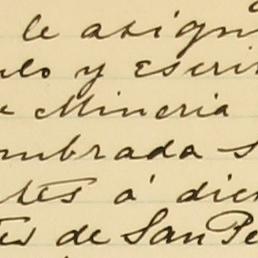 le asign
ulo y Escri
e Mineria
ombrada s
tes á dic
tes de San Pe